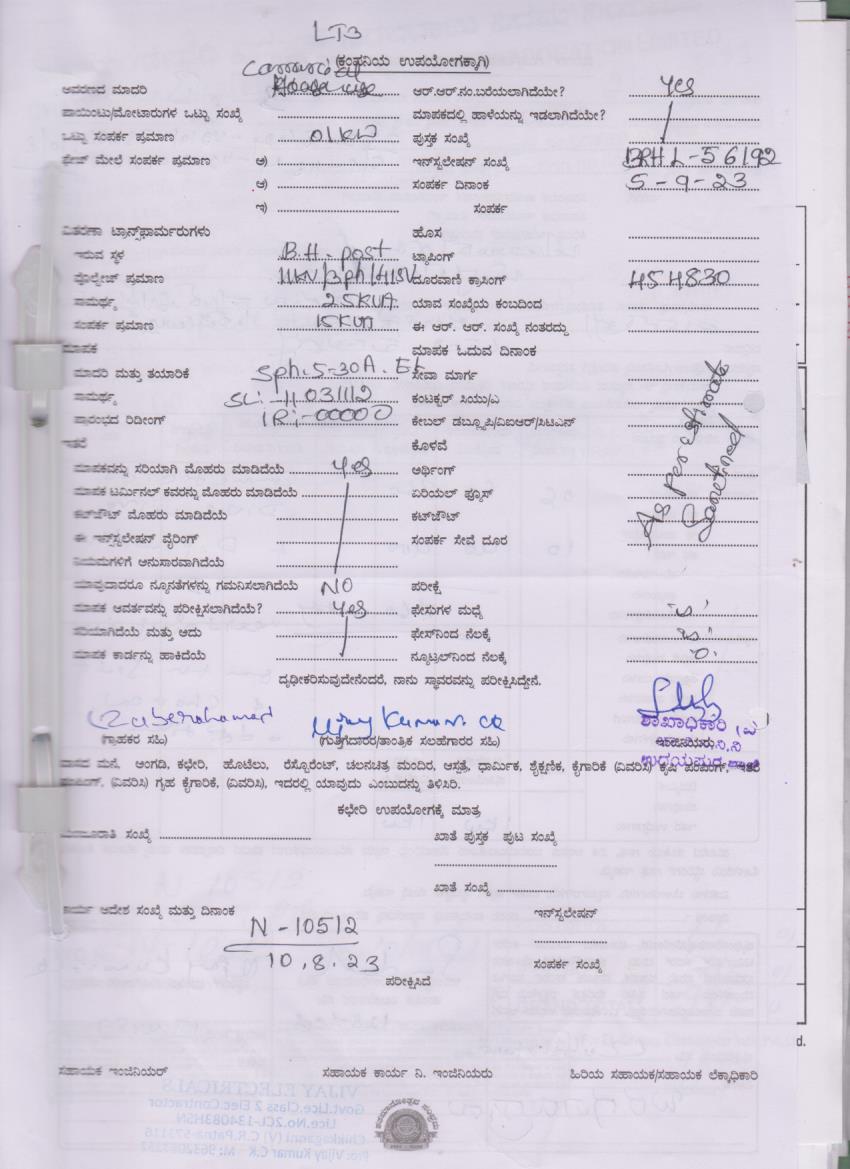 LT3
(ಕಂಪನಿಯ ಉಪಯೋಗಕ್ಕಾಗಿ)
ಆವರಣದ ಮಾದರಿ ಆರ್.ಆರ್.ನಂ.ಬರೆಯಲಾಗಿದೆಯೇ? Yes
ಪಾಯಿಂಟು/ಮೋಟಾರುಗಳ ಒಟ್ಟು ಸಂಖ್ಯೆ ಮಾಪಕದಲ್ಲಿ ಹಾಳೆಯನ್ನು ಇಡಲಾಗಿದೆಯೇ?
ಒಟ್ಟು ಸಂಪರ್ಕ ಪ್ರಮಾಣ 01KW ಪುಸ್ತಕ ಸಂಖ್ಯೆ
ಫೇಜ್ ಮೇಲೆ ಸಂಪರ್ಕ ಪ್ರಮಾಣ ಅ) ಇನ್‌ಸ್ಟಲೇಷನ್ ಸಂಖ್ಯೆ BRHL-56192
ಆ) ಸಂಪರ್ಕ ದಿನಾಂಕ 5-9-23
ಇ) ಸಂಪರ್ಕ
ವಿತರಣಾ ಟ್ರಾನ್ಸ್‌ಫಾರ್ಮರುಗಳು ಹೊಸ
ಇರುವ ಸ್ಥಳ B.H. post ಟ್ಯಾಪಿಂಗ್
ವೊಲ್ಟೇಜ್ ಪ್ರಮಾಣ 11KV/3ph/415V ದೂರವಾಣಿ ಕ್ರಾಸಿಂಗ್ 454830
ಸಾಮರ್ಥ್ಯ 25KVA ಯಾವ ಸಂಖ್ಯೆಯ ಕಂಬದಿಂದ
ಸಂಪರ್ಕ ಪ್ರಮಾಣ 15KVA ಈ ಆರ್. ಆರ್. ಸಂಖ್ಯೆ ನಂತರದ್ದು
ಮಾಪಕ ಮಾಪಕ ಓದುವ ದಿನಾಂಕ
ಮಾದರಿ ಮತ್ತು ತಯಾರಿಕೆ Sph.5-30A. ಸೇವಾ ಮಾರ್ಗ
ಸಾಮರ್ಥ್ಯ SL:-11031112 ಕಂಟಕ್ಟರ್ ಸಿಯು/ಎ
ಪ್ರಾರಂಭದ ರಿಡೀಂಗ್ IR:-00000 ಕೇಬಲ್ ಡಬ್ಲ್ಯೂಪಿ/ವಿಐಆರ್/ಸಿಟಿಎಸ್
ಇತರೆ ಕೊಳವೆ
ಮಾಪಕವನ್ನು ಸರಿಯಾಗಿ ಮೊಹರು ಮಾಡಿದೆಯೆ Yes ಅರ್ಥಿಂಗ್
ಮಾಪಕ ಟರ್ಮಿನಲ್ ಕವರನ್ನು ಮೊಹರು ಮಾಡಿದೆಯೆ ಏರಿಯಲ್ ಫ್ಯೂಸ್
ಕಟ್‌ಔಟ್ ಮೊಹರು ಮಾಡಿದೆಯೆ ಕಟ್‌ಔಟ್
ಈ ಇನ್‌ಸ್ಟಲೇಷನ್ ವೈರಿಂಗ್ ಸಂಪರ್ಕ ಸೇವೆ ದೂರ
As Per estimate Sanctined
ನಿಯಮಗಳಿಗೆ ಅನುಸಾರವಾಗಿದೆಯೆ
ಯಾವುದಾದರೂ ನ್ಯೂನತೆಗಳನ್ನು ಗಮನಿಸಲಾಗಿದೆಯೆ NO ಪರೀಕ್ಷೆ
ಮಾಪಕ ಆವರ್ತವನ್ನು ಪರೀಕ್ಷಿಸಲಾಗಿದೆಯೆ? Yes ಫೇಸುಗಳ ಮಧ್ಯೆ
ಸರಿಯಾಗಿದೆಯೆ ಮತ್ತು ಆದು ಫೇಸ್‌ನಿಂದ ನೆಲಕ್ಕೆ
ಮಾಪಕ ಕಾರ್ಡನ್ನು ಹಾಕಿದೆಯೆ ನ್ಯೂಟ್ರಲ್‌ನಿಂದ ನೆಲಕ್ಕೆ
ದೃಢೀಕರಿಸುವುದೇನೆಂದರೆ, ನಾನು ಸ್ಥಾವರವನ್ನು ಪರೀಕ್ಷಿಸಿದ್ದೇನೆ.
Vijay Kumar. CK
ಶಾಖಾಧಿಕಾರಿ
(ಗ್ರಾಹಕರ ಸಹಿ) (ಗುತ್ತಿಗೆದಾರರ/ತಾಂತ್ರಿಕ ಸಲಹೆಗಾರರ ಸಹಿ) ಇಂಜಿನಿಯರು
ವಾಸದ ಮನೆ, ಅಂಗಡಿ, ಕಛೇರಿ, ಹೋಟೆಲು, ರೆಸ್ಟೋರೆಂಟ್, ಚಲನಚಿತ್ರ ಮಂದಿರ, ಆಸ್ಪತ್ರೆ, ಧಾರ್ಮಿಕ, ಶೈಕ್ಷಣಿಕ, ಕೈಗಾರಿಕೆ (ವಿವರಿಸಿ) ಕೃಷಿ ಪಂಪಿಂಗ್, ಇತರೆ
ಪಂಪಿಂಗ್, (ವಿವರಿಸಿ) ಗೃಹ ಕೈಗಾರಿಕೆ, (ವಿವರಿಸಿ), ಇದರಲ್ಲಿ ಯಾವುದು ಎಂಬುದನ್ನು ತಿಳಿಸಿರಿ.
ಕಛೇರಿ ಉಪಯೋಗಕ್ಕೆ ಮಾತ್ರ
ಸಂಖ್ಯೆ ಖಾತೆ ಪುಸ್ತಕ ಪುಟ ಸಂಖ್ಯೆ
ಖಾತೆ ಸಂಖ್ಯೆ
ಕಾರ್ಯ ಆದೇಶ ಸಂಖ್ಯೆ ಮತ್ತು ದಿನಾಂಕ ಇನ್‌ಸ್ಟಲೇಷನ್
N-10512
10.8.23 ಸಂಪರ್ಕ ಸಂಖ್ಯೆ
ಪರೀಕ್ಷಿಸಿದೆ
d.
ಸಹಾಯಕ ಇಂಜಿನಿಯರ್ ಸಹಾಯಕ ಕಾರ್ಯ ನಿ. ಇಂಜಿನಿಯರು ಹಿರಿಯ ಸಹಾಯಕ/ಸಹಾಯಕ ಲೆಕ್ಕಾಧಿಕಾರಿ